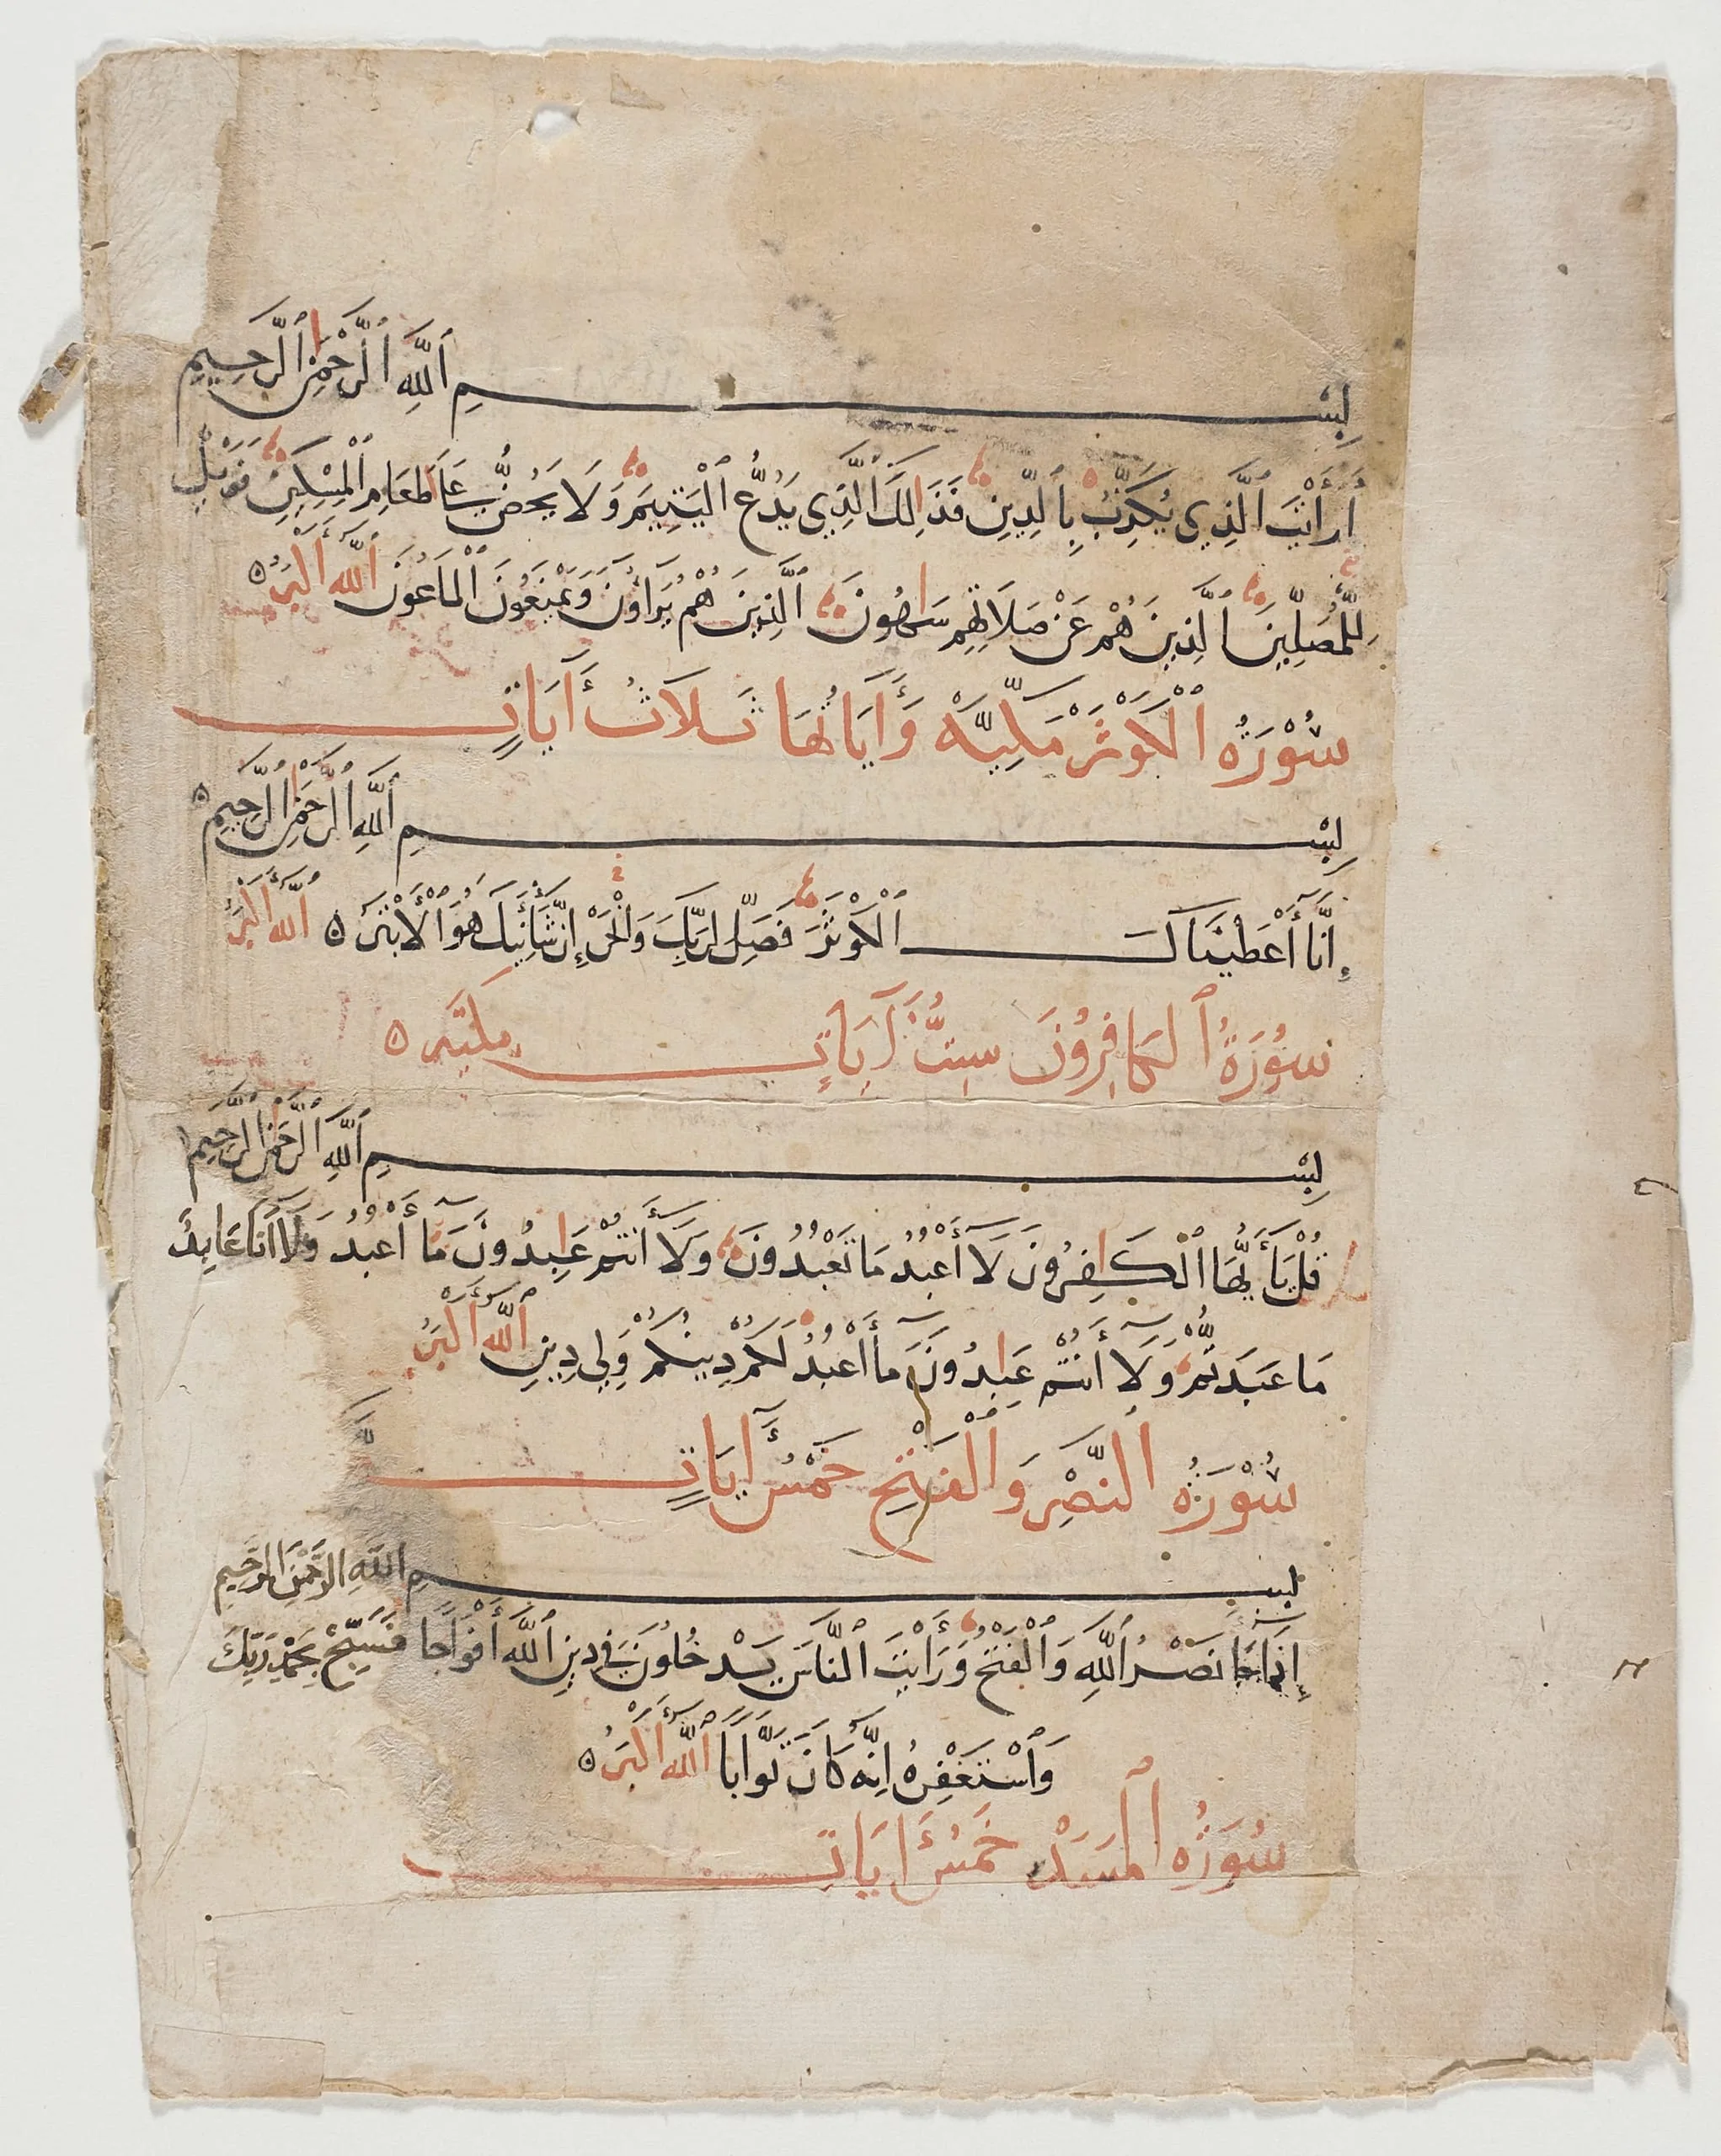 بِسْمِ ٱللَّهِ ٱلرَّحْمٰنِ ٱلرَّحِيمِ
أَرَأَيْتَ ٱلَّذِي يُكَذِّبُ بِٱلدِّينِ فَذَالِكَ ٱلَّذِي يَدُعُّ ٱلْيَتِيمَ وَلَا يَحُضُّ عَلَىٰ طَعَامِ ٱلْمِسْكِينِ فَوَيْلٌ
لِلْمُصَلِّينَ ٱلَّذِينَ هُمْ عَنْ صَلَاتِهِمْ سَاهُونَ ٱلَّذِينَ هُمْ يُرَاؤُنَ وَيَمْنَعُونَ ٱلْمَاعُونَ ٱللَّهُ أَكْبَرُ ه
سُوْرَةُ ٱلْكَوْثَرْ مَكِّيَّةْ وَأَيَاتُهَا ثَلَاثُ أَيَاتٍ
بِسْمِ ٱللَّهِ ٱلرَّحْمٰنِ ٱلرَّحِيمِ ه
إِنَّآ أَعْطَيْنَاكَ ٱلْكَوْثَرَ فَصَلِّ لِرَبِّكَ وَٱنْحَرْ إِنَّ شَانِئَكَ هُوَ ٱلْأَبْتَرُ ه ٱللَّهُ أَكْبَرُ
سُوْرَةُ ٱلْكَافِرُونَ سِتُّ آيَاتٍ مَكِّيَّه ه
بِسْمِ ٱللَّهِ ٱلرَّحْمٰنِ ٱلرَّحِيمِ
قُلْ يَآ أَيُّهَا ٱلْكَافِرُونَ لَآ أَعْبُدُ مَا تَعْبُدُونَ وَلَآ أَنْتُمْ عَابِدُونَ مَآ أَعْبُدُ وَلَآ أَنَا عَابِدٌ
مَا عَبَدتُّمْ وَلَآ أَنْتُمْ عَابِدُونَ مَآ أَعْبُدُ لَكُمْ دِينُكُمْ وَلِيَ دِينِ ٱللَّهُ أَكْبَرُ
سُوْرَةُ ٱلنَّصْرِ وَٱلْفَتْحِ خَمْسُ أَيَاتٍ
بِسْمِ ٱللَّهِ ٱلرَّحْمٰنِ ٱلرَّحِيمِ
إِذَا جَآ نَصْرُ ٱللَّهِ وَٱلْفَتْحُ وَرَأَيْتَ ٱلنَّاسَ يَدْخُلُونَ فِي دِينِ ٱللَّهِ أَفْوَاجًا فَسَبِّحْ بِحَمْدِ رَبِّكَ
وَٱسْتَغْفِرْهُ إِنَّهُ كَانَ تَوَّابًا ٱللَّهُ أَكْبَرُ ه
سُوْرَةُ ٱلْمَسَدْ خَمْسُ أَيَاتٍ